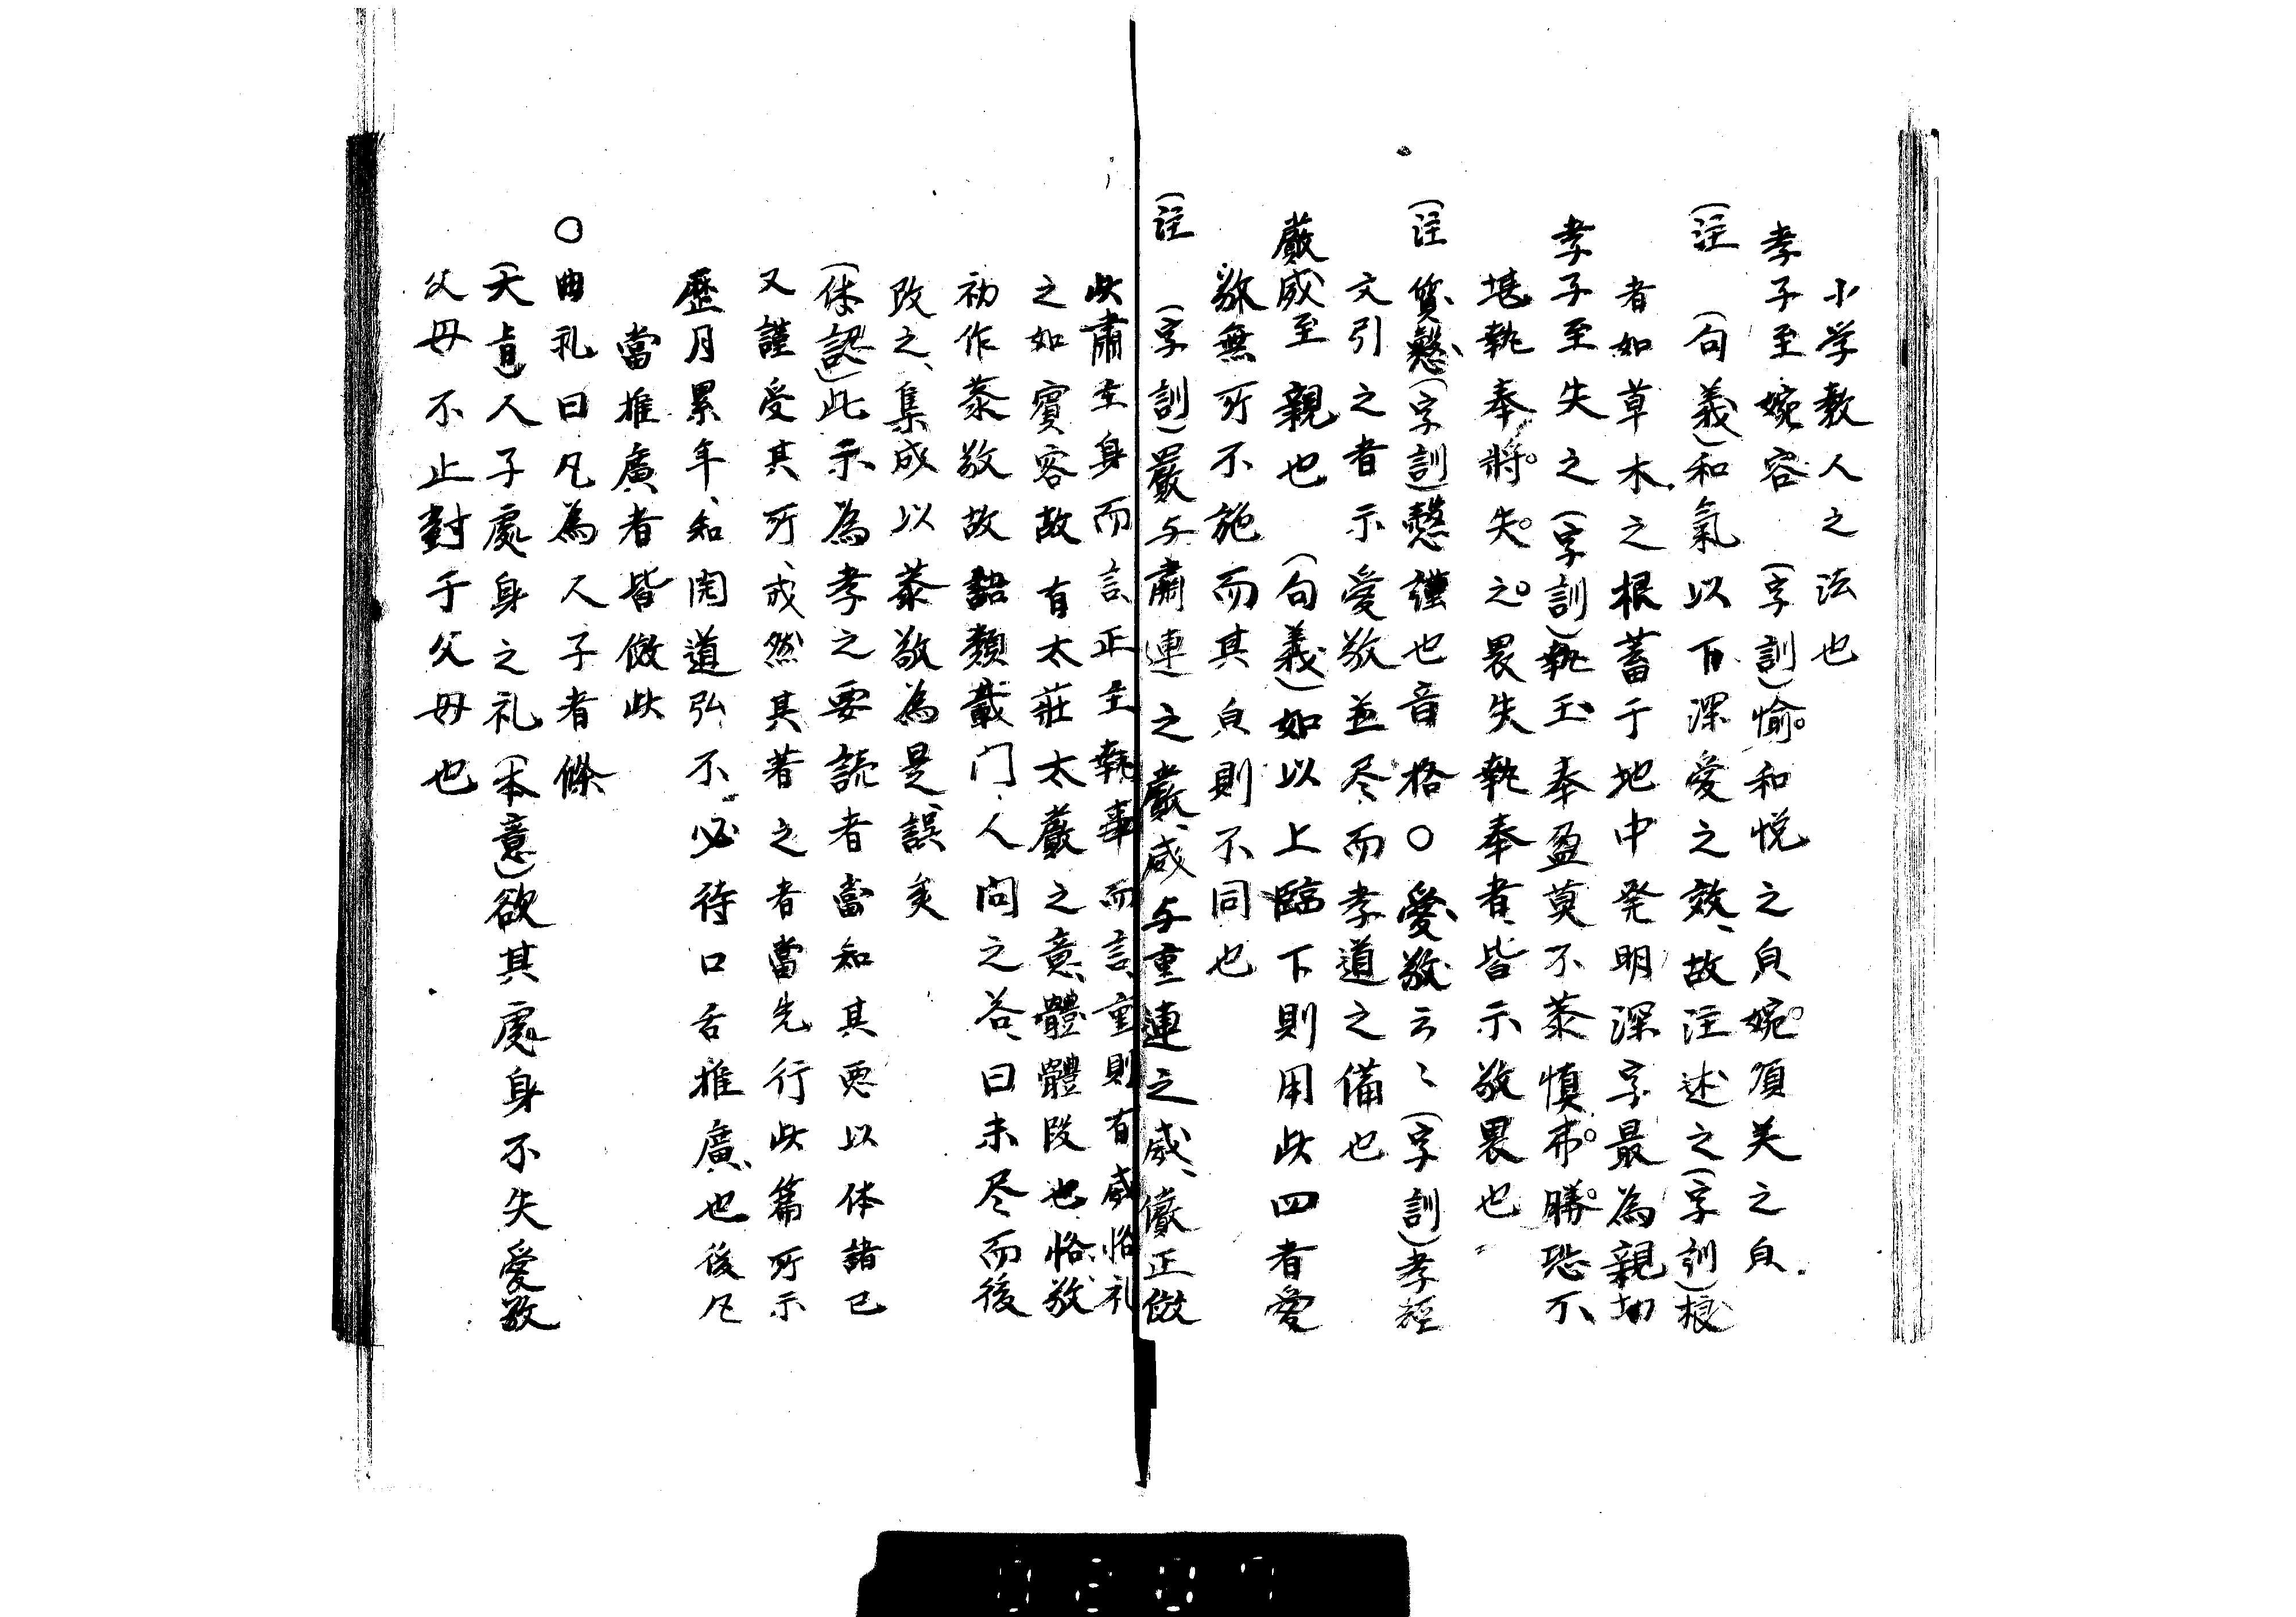 小学教人之法也
孝子至婉容 (字訓)愉和悦之皃婉順美之皃
(注 (句義)和氣以下深愛之效故注述之(字訓)根
者如草木之根蓄于地中発明深字最為親切
孝子至失之(字訓)執玉奉盈莫不恭慎弗勝恐不
堪執奉將失之畏失執奉者皆示敬畏也
(注 質慤(字訓)慤謹也音格○愛敬云〻(字訓)孝經
文引之者示愛敬並尽而孝道之備也
嚴威至親也 (句義)如以上臨下則用此四者愛
敬無所不施而其皃則不同也
(注 (字訓)嚴与肅連之嚴威与重連之威儼正儼
此肅主身而言正主執事而言重則有威恪礼
之如賓客故有太莊太嚴之意體體段也恪敬
初作恭敬故語類載门人问之答曰未尽而後
改之集成以恭敬為是誤矣
(体認)此示為孝之要読者當知其要以体諸己
又謹受其所戒然其著之者當先行此篇所示
歷月累年知開道弘不必待口舌推廣也後凡
當推廣者皆倣此
○曲礼曰凡為人子者條
(大旨人子處身之礼(本意)欲其處身不失愛敬
父母不止對于父母也